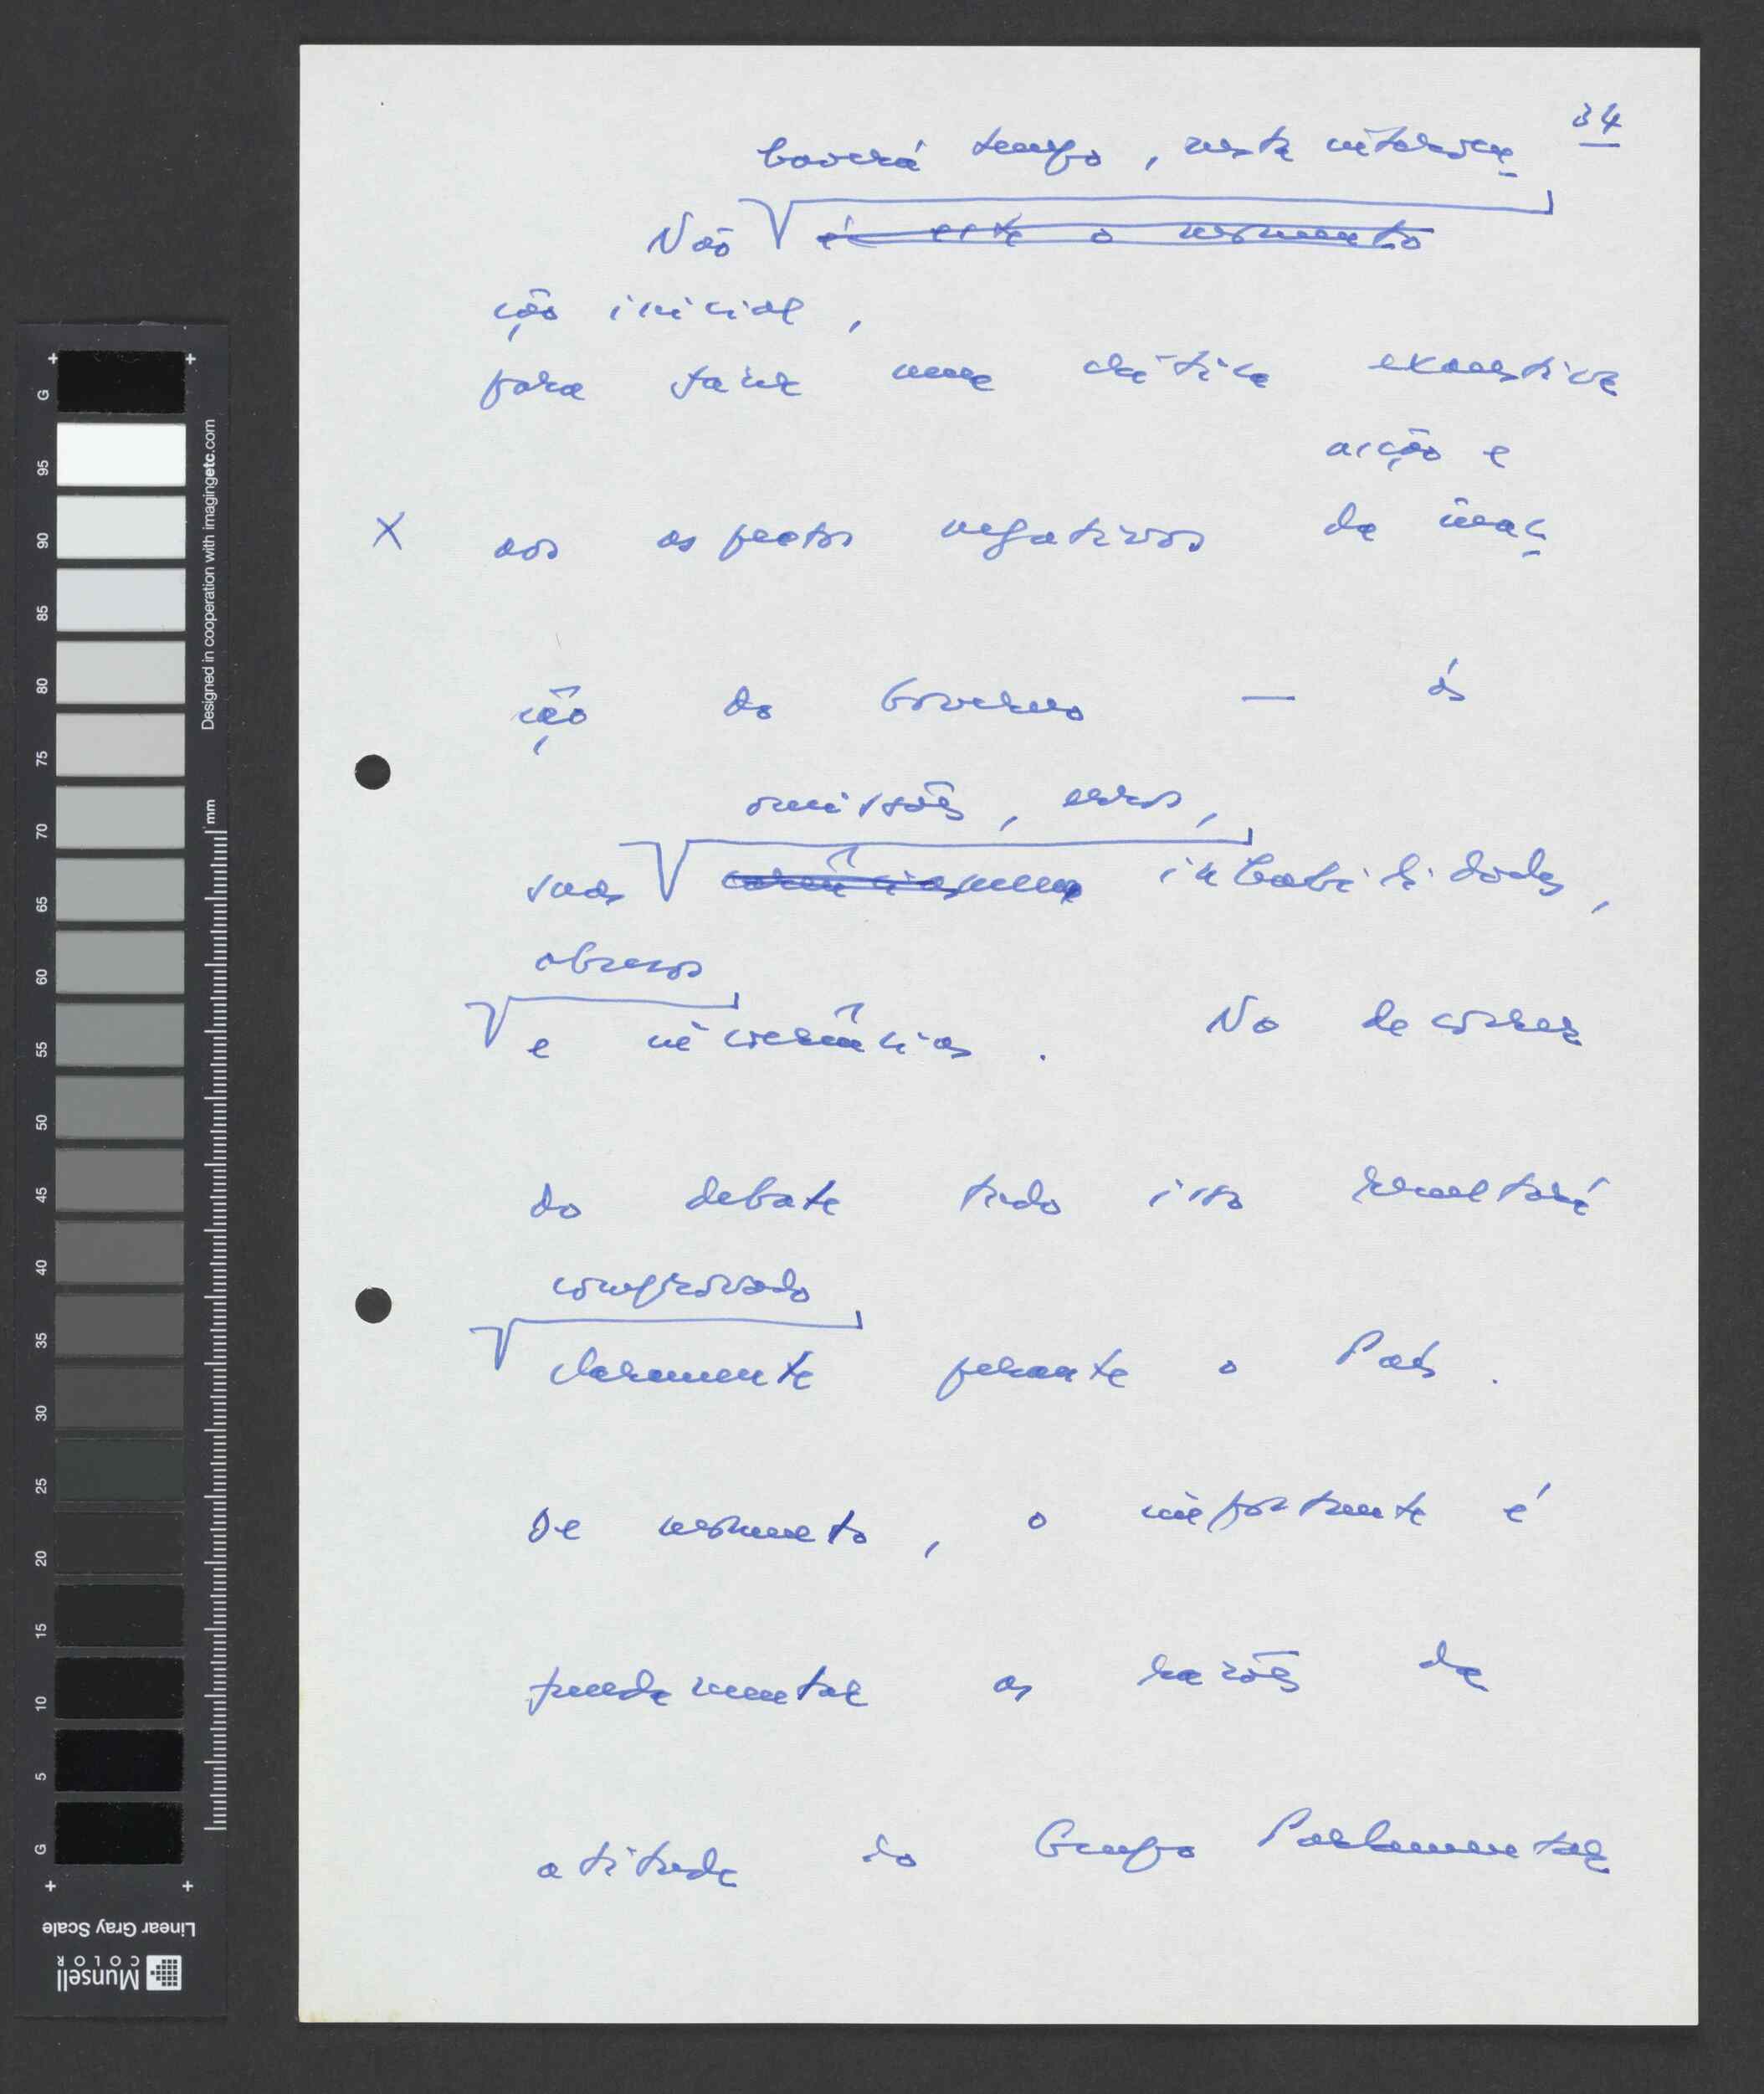 34
haverá tempo, nesta interven
Não é este o momento
ção inicial,
para fazer uma crítica exaustiva
acção e
X aos aspectos negativos da inac
ção do Governo — às
omissões, erros,
suas carências, inabilidades,
abusos
e incoerências. No decorrer
do debate tudo isso resultará
comprovado
claramente perante o País.
De momento, o importante é
fundamentar as razões da
atitude do Grupo Parlamentar
G 95 90 85 80 75 70 65 60 55 50 45 40 35 30 25 20 15 10 5 G
Designed in cooperation with imagingetc.com
mm
Linear Gray Scale
Munsell
COLOR